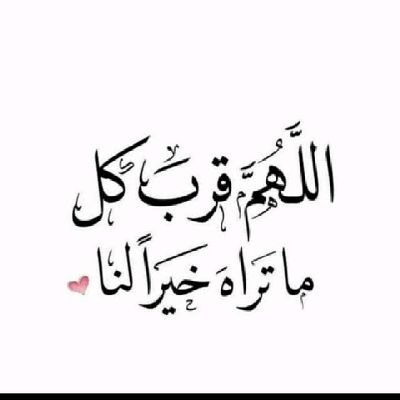 اللَّهُمَّ قربَ كل
ما تَرَاهَ خَيَراً لنا